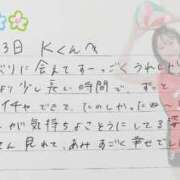 3日 Kくんへ
ぶりに会えてすーっごくうれしい
より少し長い時間で、すって
イチャできて、たのしかったねー
が気持ちよさそうにしてる姿
さん見れて、あみすごく幸せでし